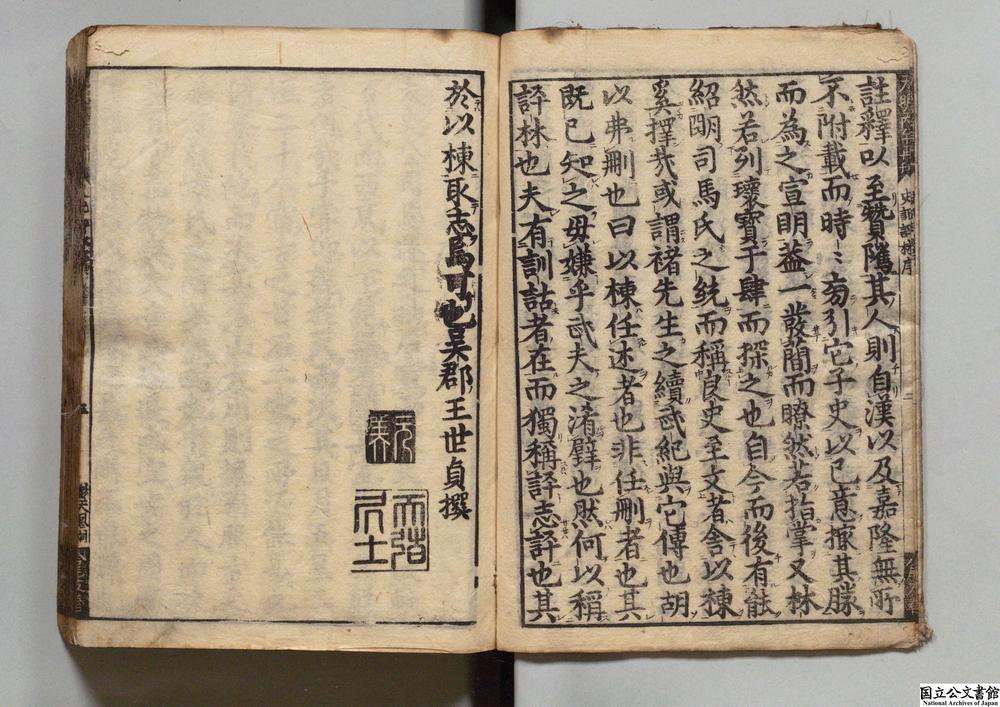 註釋以至贊隲其人則自漢以及嘉隆無所
不附載而時〻旁引它子史以己意撥其勝
而為之宣明葢一發簡而瞭然若指掌又林
然若列瓌寶于肆而探之也自今而後有能
紹明司馬氏之統而稱良史至文者舍以棟
奚擇哉或謂褚先生之續武紀與它傳也胡
以弗刪也曰以棟任述者也非任刪者也其
既已知之毋嫌乎武夫之淆璧也然何以稱
評林也夫有訓詁者在而獨稱評志評也其
於以棟取志焉可也吳郡王世貞撰
元美
天弢居士
国立公文書館
National Archives of Japan